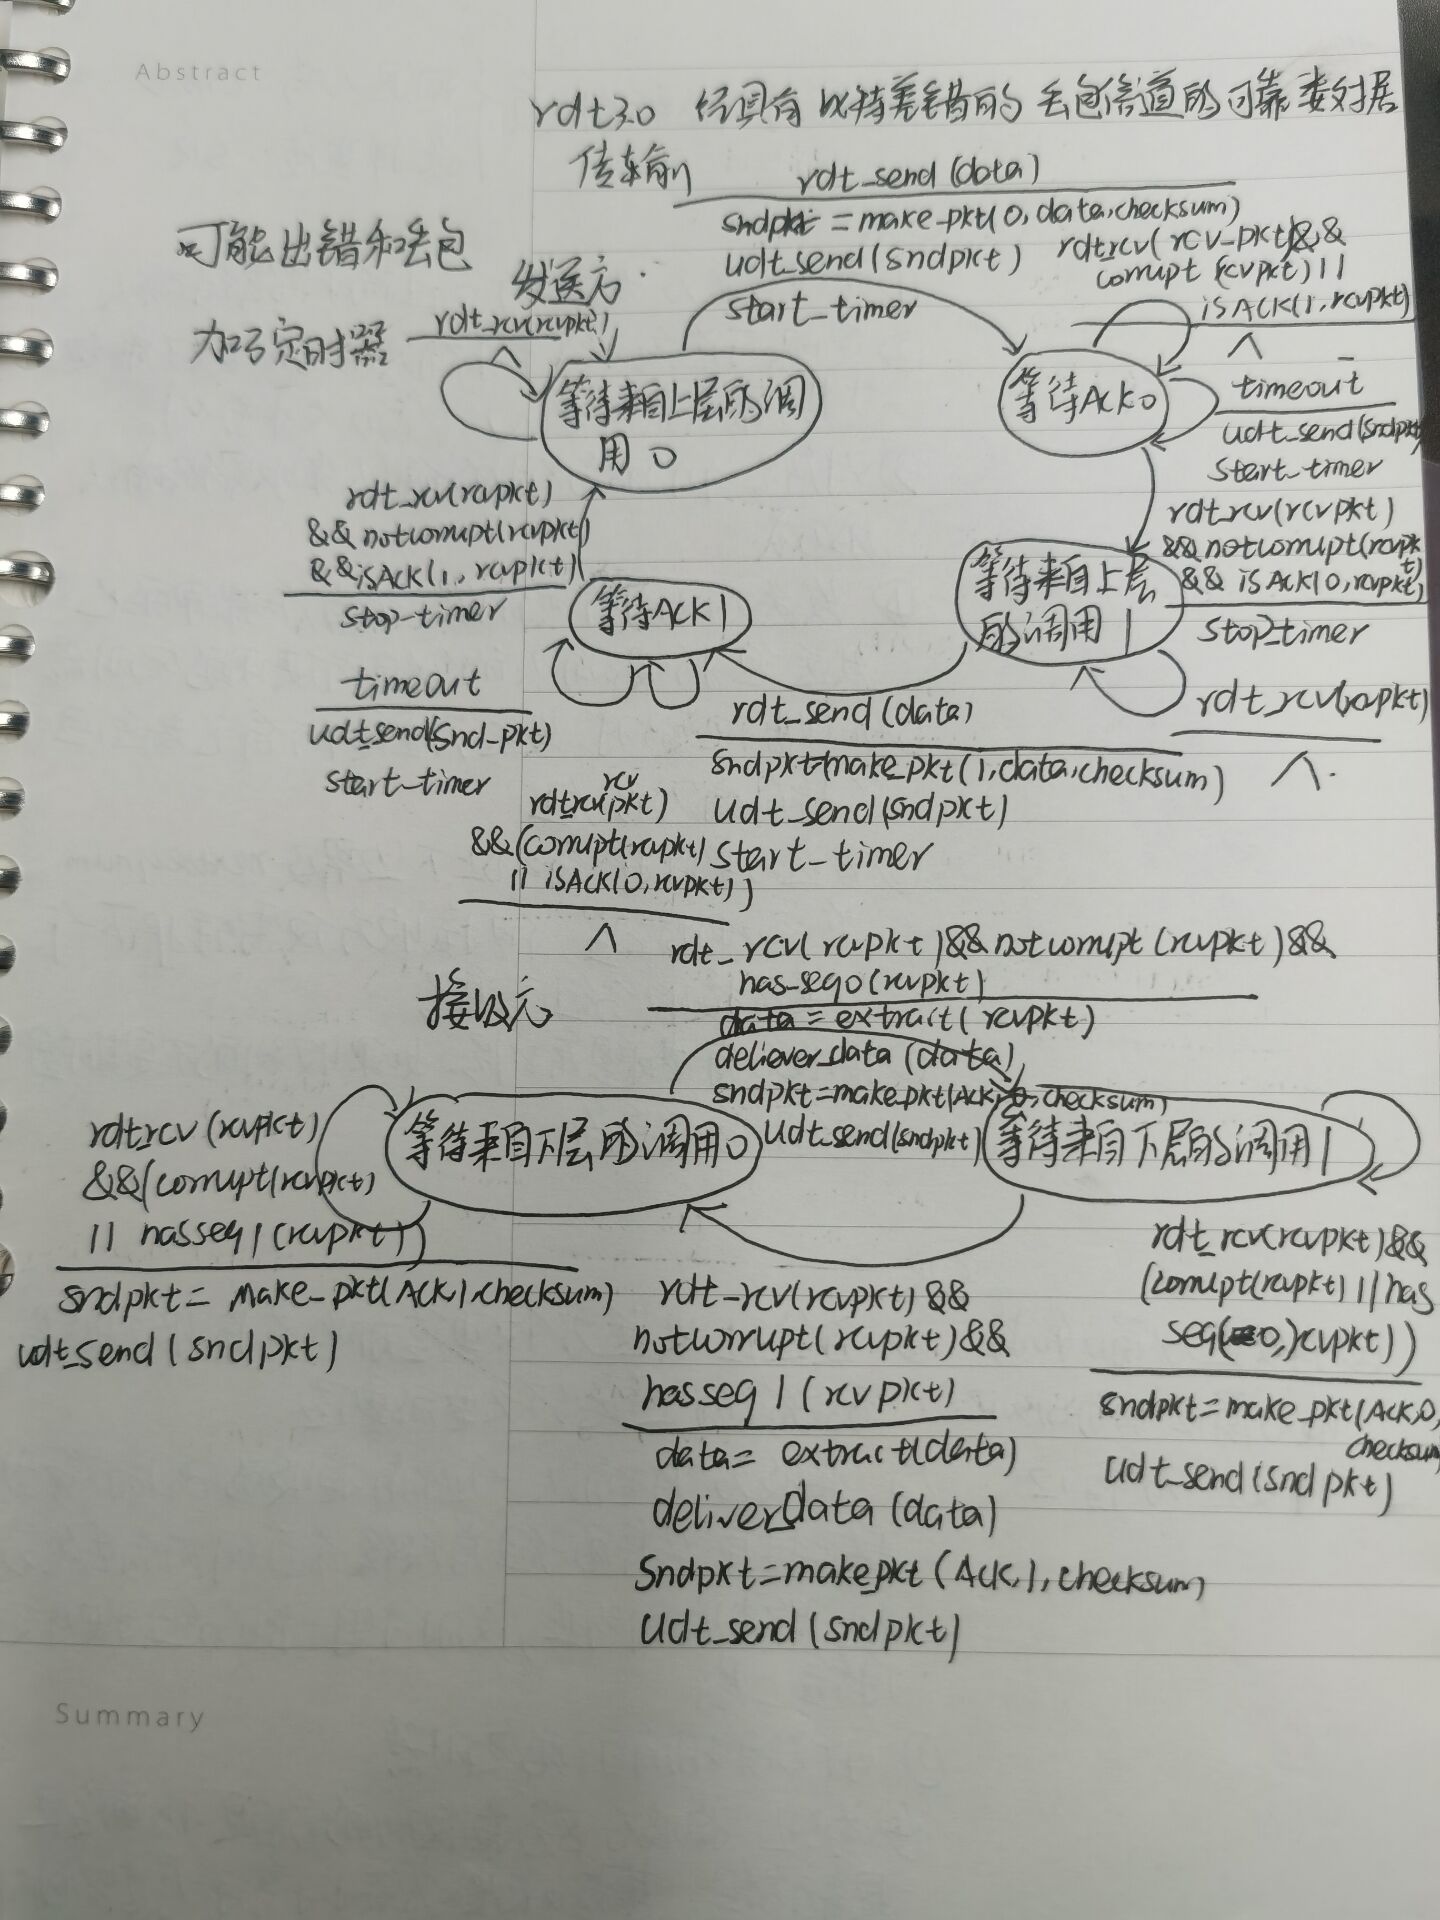 Abstract
rdt3.0 经具有比特差错的丢包信道的可靠数据
传输
可能出错和丢包
加了定时器
发送方
rdt_send(data)
sndpkt = make_pkt(0,data,checksum)
udt_send(sndpkt)
start_timer
rdt_rcv(rcv_pkt)&&
corrupt (rcvpkt) ||
isACK(1,rcvpkt)
Λ
rdt_rcv(rcvpkt)
Λ
等待来自上层的调
用0
等待Ack0
timeout
udt_send(sndpkt
start_timer
rdt_rcv(rcvpkt)
&&notcorrupt(rcvpk
t)
&& isACK(0,rcvpkt)
stop_timer
rdt_rcv(rcvpkt)
&&notcorrupt(rcvpkt)
&&isACK(1, rcvpkt)
stop-timer
等待ACK1
等待来自上层
的调用1
rdt_rcv(rcvpkt)
Λ
timeout
udt_send(snd_pkt)
start_timer
rdt_send(data)
sndpkt=make_pkt(1,data,checksum)
udt_send(sndpkt)
start_timer
rcv
rdt_rcv(pkt)
&&(corrupt(rcvpkt)
|| isACK(0,rcvpkt))
Λ
接收方
rdt_rcv(rcvpkt)&&notcorrupt(rcvpkt)&&
has_seq0(rcvpkt)
data = extract(rcvpkt)
deliever_data(data)
sndpkt=make_pkt(Ack,0,checksum)
udt_send(sndpkt)
等待来自下层的调用0
等待来自下层的调用1
rdt_rcv(rcvpkt)
&&(corrupt(rcvpkt)
|| hasseq1(rcvpkt))
sndpkt= make_pkt(ACK,1,checksum)
udt_send(sndpkt)
rdt_rcv(rcvpkt)&&
notcorrupt(rcvpkt)&&
hasseq1(rcvpkt)
data= extract(data)
deliver_data(data)
Sndpkt=make_pkt(ACK,1,checksum)
udt_send(sndpkt)
rdt_rcv(rcvpkt)&&
(corrupt(rcvpkt)||has
seq(0,)rcvpkt))
sndpkt=make_pkt(ACK,0,
checksum)
udt_send(sndpkt)
Summary